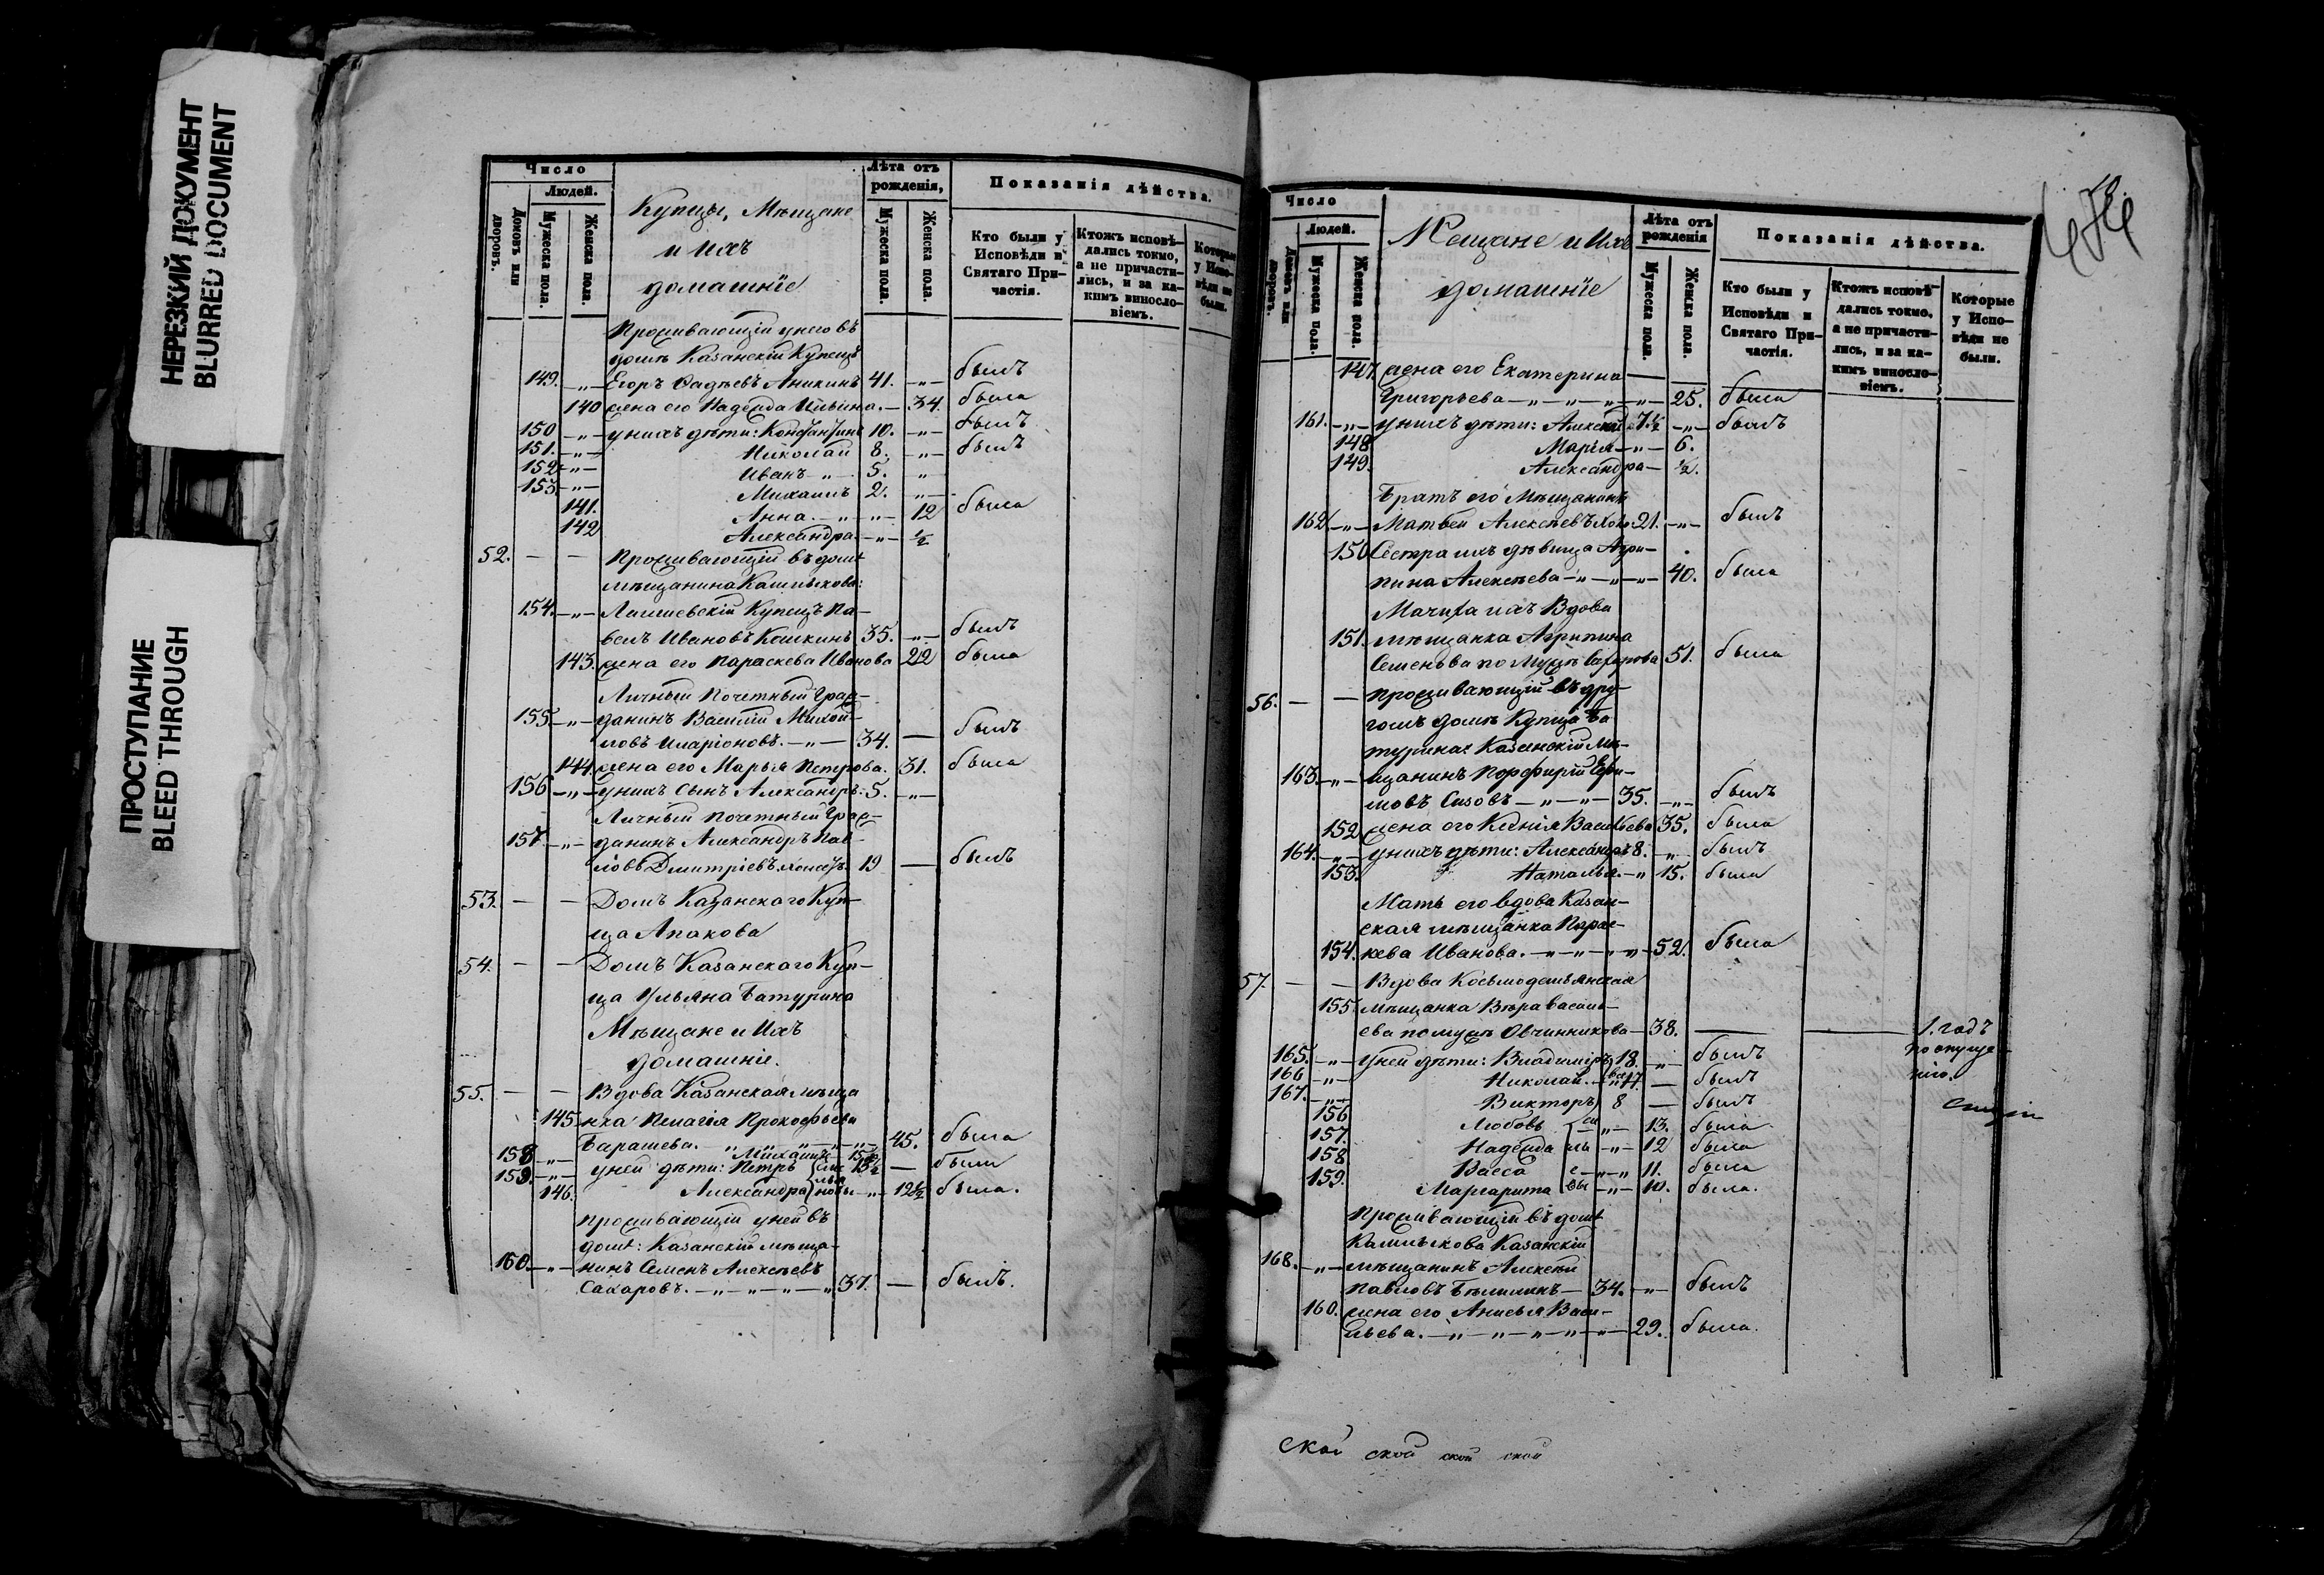 НЕРЕЗКИЙ ДОКУМЕНТ
BLURRED DOCUMENT
ПРОСТУПАНИЕ
BLEED THROUGH
Число
Людей.
Домовъ или дворовъ.
Мужеска пола.
Женска пола.
Купцы, Мѣщане
и ихъ
домашніе
Лѣта отъ рожденія,
Мужеска пола.
Женска пола.
Показанія дѣйства.
Кто были у Исповѣди и Святаго Причастія.
Ктожъ исповѣдались токмо, а не причастились, и за какимъ винословіемъ.
Которые у Исповѣди не были.
Проживающій у него въ
домѣ Казанскій Купецъ
149. —„— Егоръ Фадѣевъ Аникинъ 41. —„— былъ
140 жена его Надежда Ильина. — 34. была
150 —„— у нихъ дѣти: Константинъ 10. —„— былъ
151. —„— Николай 8. —„— былъ
152. —„— Иванъ „ — 5. „
153. —„— Михаилъ 2. „ —
141. Анна. — „ —„— 12 была
142 Александра. —„— ½
52. — — Проживающій въ домѣ
мѣщанина Калмыкова:
154. —„— Лаишевскій Купецъ Па-
велъ Ивановъ Кошкинъ 35. —„— былъ
143. жена его Параскева Иванова 22 была
Личный Почетный Граж-
155 —„— данинъ Василій Михай-
ловъ Иларіоновъ. —„— 34. — былъ
144. жена его Марья Петрова. 31. была
156 —„— у нихъ Сынъ Александръ. 5. —„—
Личный почетный Граж-
157. —„— данинъ Александръ Пав-
ловъ Дмитріевъ. холостъ. 19 — былъ
53. — — Домъ Казанскаго Куп-
ца Апакова
54. — — Домъ Казанскаго Куп-
ца Ульяна Батурина
Мѣщане и Ихъ
домашніе.
55. — — Вдова Казанская мѣща
145 нка Пелагія Прокофьева
Барашева. — „ „ „ — „ — „ — 45. была
158 —„— Михаилъ
159. —„— у ней дѣти: Петръ 13½ — были
146. Александра —„— 12½ была.
проживающій у ней въ
домѣ: Казанскій мѣща-
160. —„— нинъ Семенъ Алексѣевъ
Сахаровъ. —„—„—„—„ 37. — былъ.
Число
Людей.
Домовъ или дворовъ.
Мужеска пола.
Женска пола.
Мещане и Ихъ
домашніе
Лѣта отъ рожденія
Мужеска пола.
Женска пола.
Показанія дѣйства.
Кто были у Исповѣди и Святаго Причастія.
Ктожъ исповѣдались токмо, а не причастились, и за какимъ винословіемъ.
Которые у Исповѣди не были.
147. жена его Екатерина
Григорьева —„—„—„—„— 25. была
161. —„— у нихъ дѣти: Алексѣй 7½ —„— былъ
148 Марія —„— 6.
149. Александра — ½.
Братъ его Мѣщанинъ
162. —„— Матвей Алексѣевъ 21. —„— былъ
150 Сестра ихъ дѣвица Агри-
пина Алексѣева —„—„—„— 40. была
Мачиха ихъ Вдова
151. мѣщанка Агрипина
Семенова по Мужѣ Сахарова 51. была
56. — — проживающій въ дру-
гомъ домѣ Купца Ба
турина: Казанскій мѣ-
163. —„— щанинъ Порфирій Ефи-
мовъ Сизовъ —„—„— 35. —„— былъ
152 жена его Ксенія Васильева 35. была
164. —„— у нихъ дѣти: Александръ 8. —„ былъ
153. Наталья. —„ 15. была
Мать его вдова Казан-
ская мѣщанка Парас-
154. кева Иванова. —„—„—„— 52. была
57. — — Вдова Косьмодемьянская
155 мѣщанка Вѣра Василь-
ева по мужѣ Овчинникова — 38. — — 1. годъ
по опуще-
нію.
165. —„— у ней дѣти: Владиміръ 18. —„— былъ
166 —„— Николай. — — былъ
167. —„— Викторъ 8 — былъ
156 Любовь —„— 13. была
157. Надежда —„— 12 была
158 Васса —„—„ 11. была
159. Маргарита —„— 10. была.
проживающій въ домѣ
Калмыкова Казанскій
168. —„— мѣщанинъ Алексѣй
Павловъ 34. —„— былъ
160. жена его Анисья Васи-
льева. —„—„—„—„— 29. была.
ской ской ской ской